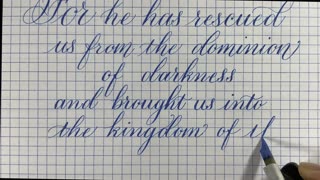 For he has rescued
us from the dominion
of darkness
and brought us into
the kingdom of